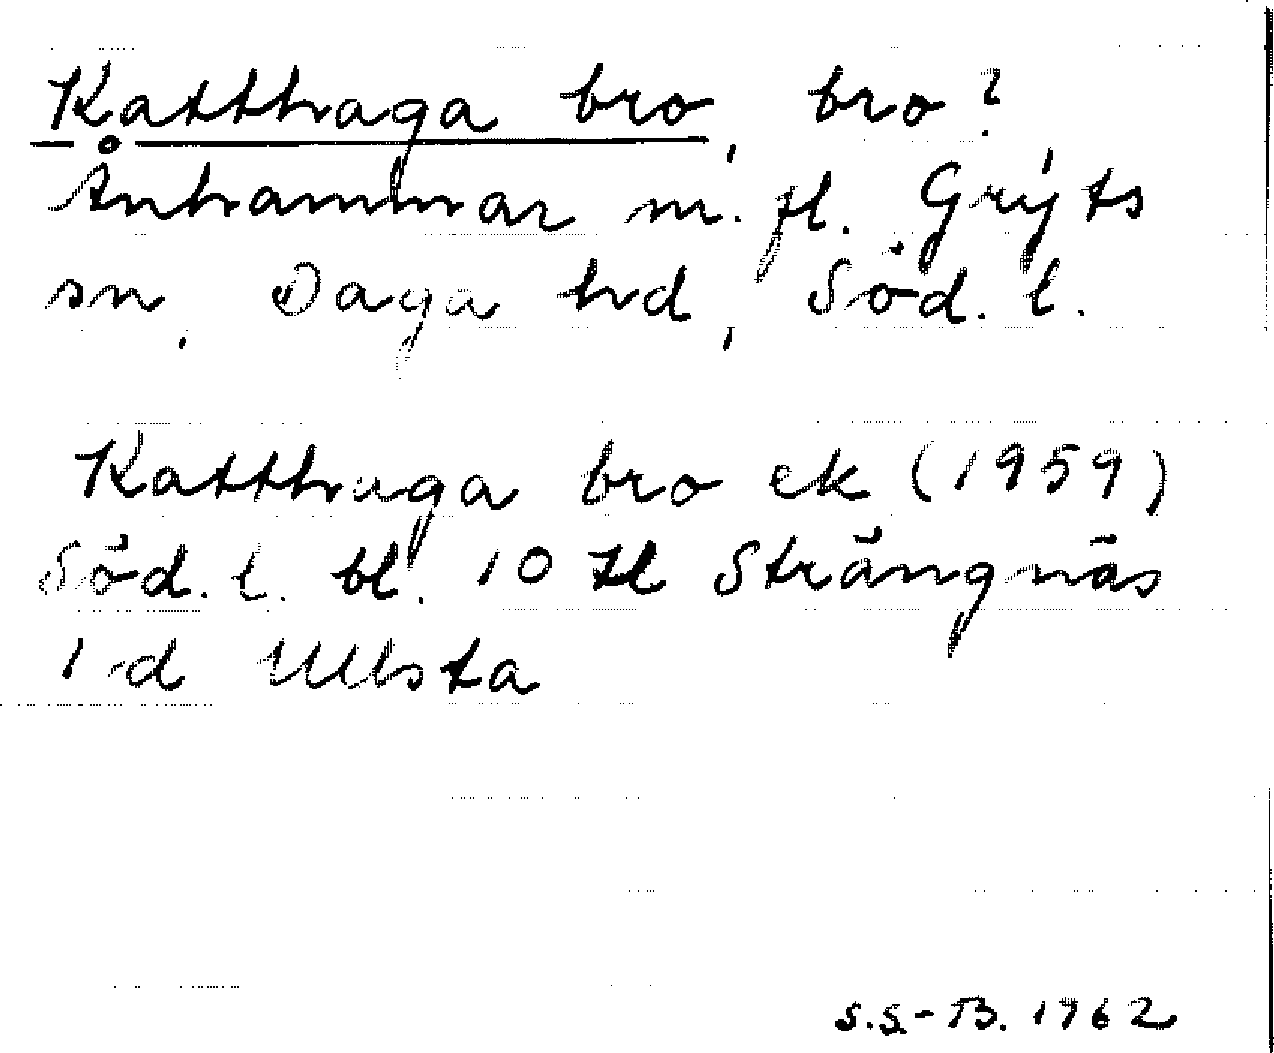 Katthaga bro, bro?
Ånhammar m. fl. Gryts
sn, Daga hd, Söd. l.
Katthaga bro ek (1959)
Söd. l. bl. 10 II Strängnäs
1 d Ullsta
S.S.-B. 1962